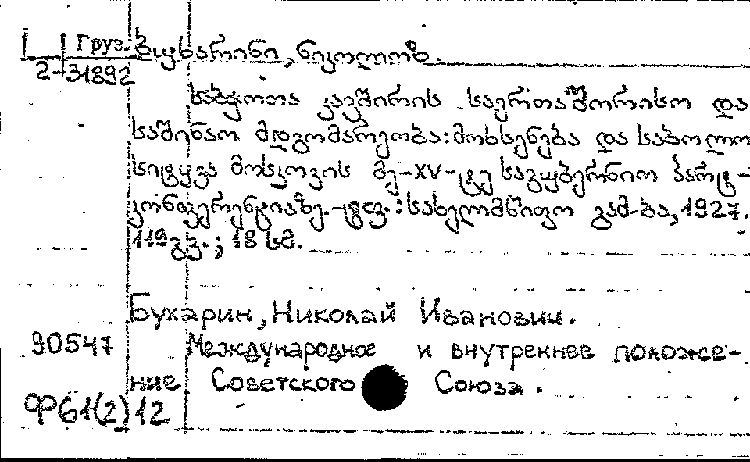 Груз. ბუხარინი, ნიკოლოზ.
2-31892
საბჭოთა კავშირის საერთაშორისო და
საშინაო მდგომარეობა: მოხსენება და საბოლოო
სიტყვა მოსკოვის მე-XV-ტე საგუბერნიო პარტ-
კონფერენციაზე.-ტფ.: სახელმწიფო გამ-ბა, 1927.
119 გვ.; 18 სმ.
Бухарин, Николай Иванович.
90547 Международное и внутреннее положе-
ние Советского Союза.
Ф61(2)12